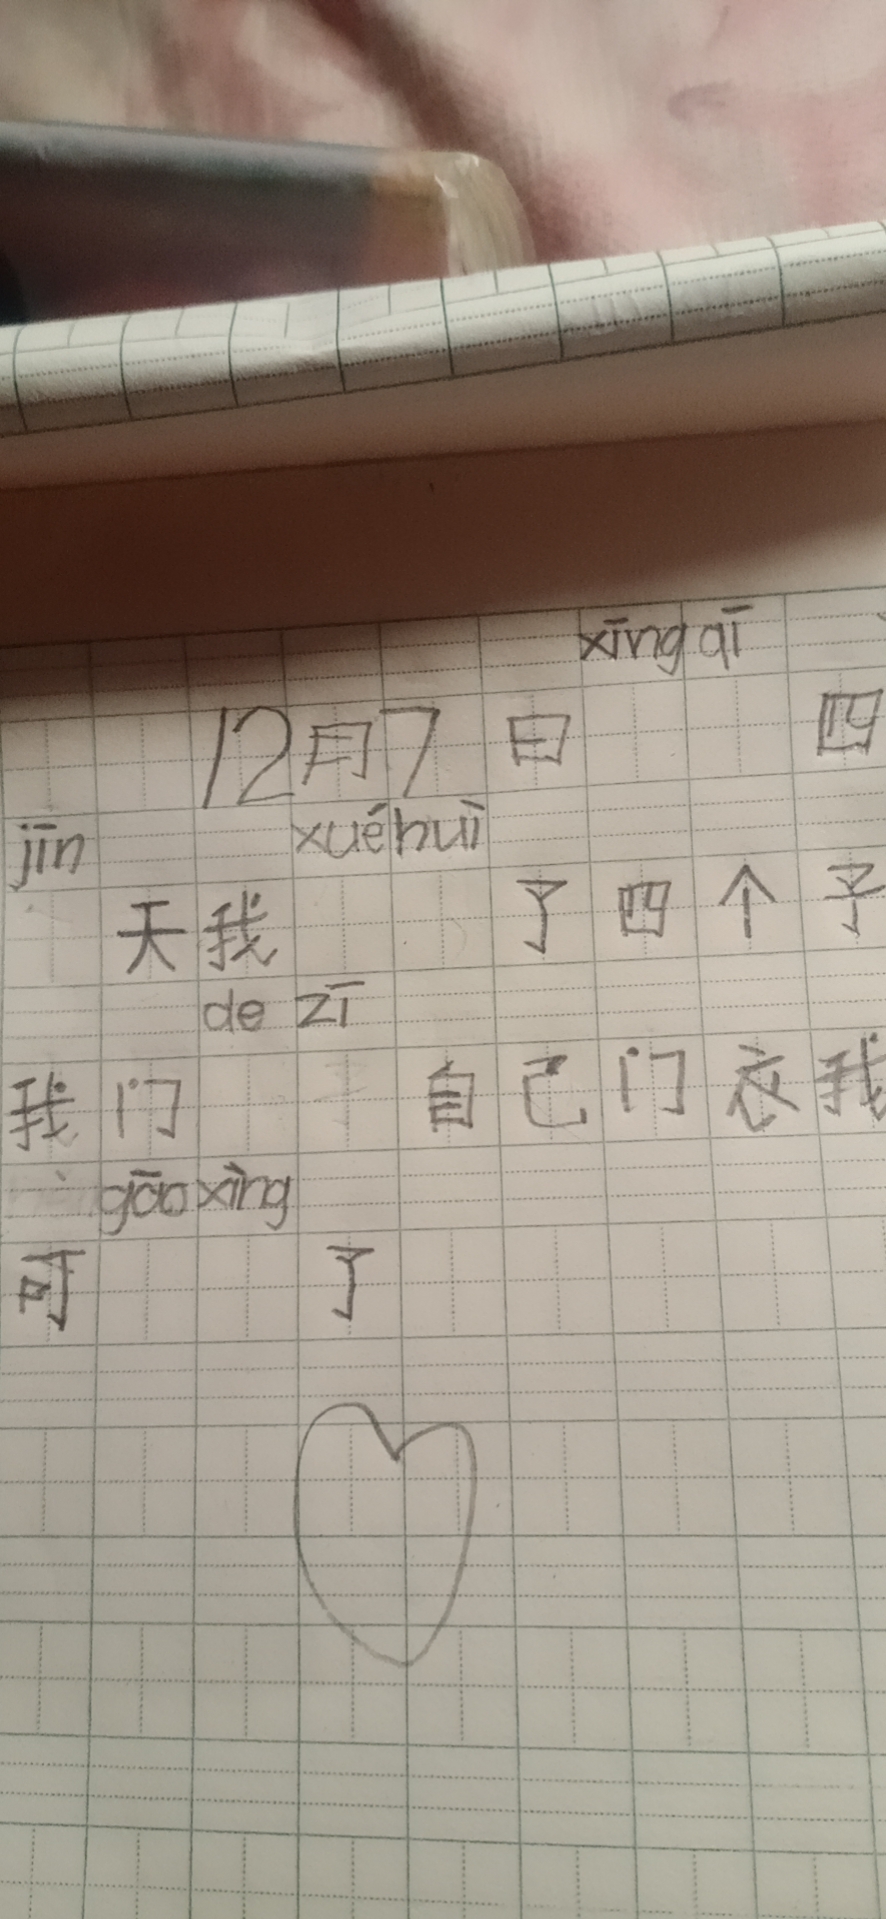 xīng qī
12月7日 四
jīn xué huì
天我 了四个子
de zī
我门 自己门衣我
gāo xìng
可 了